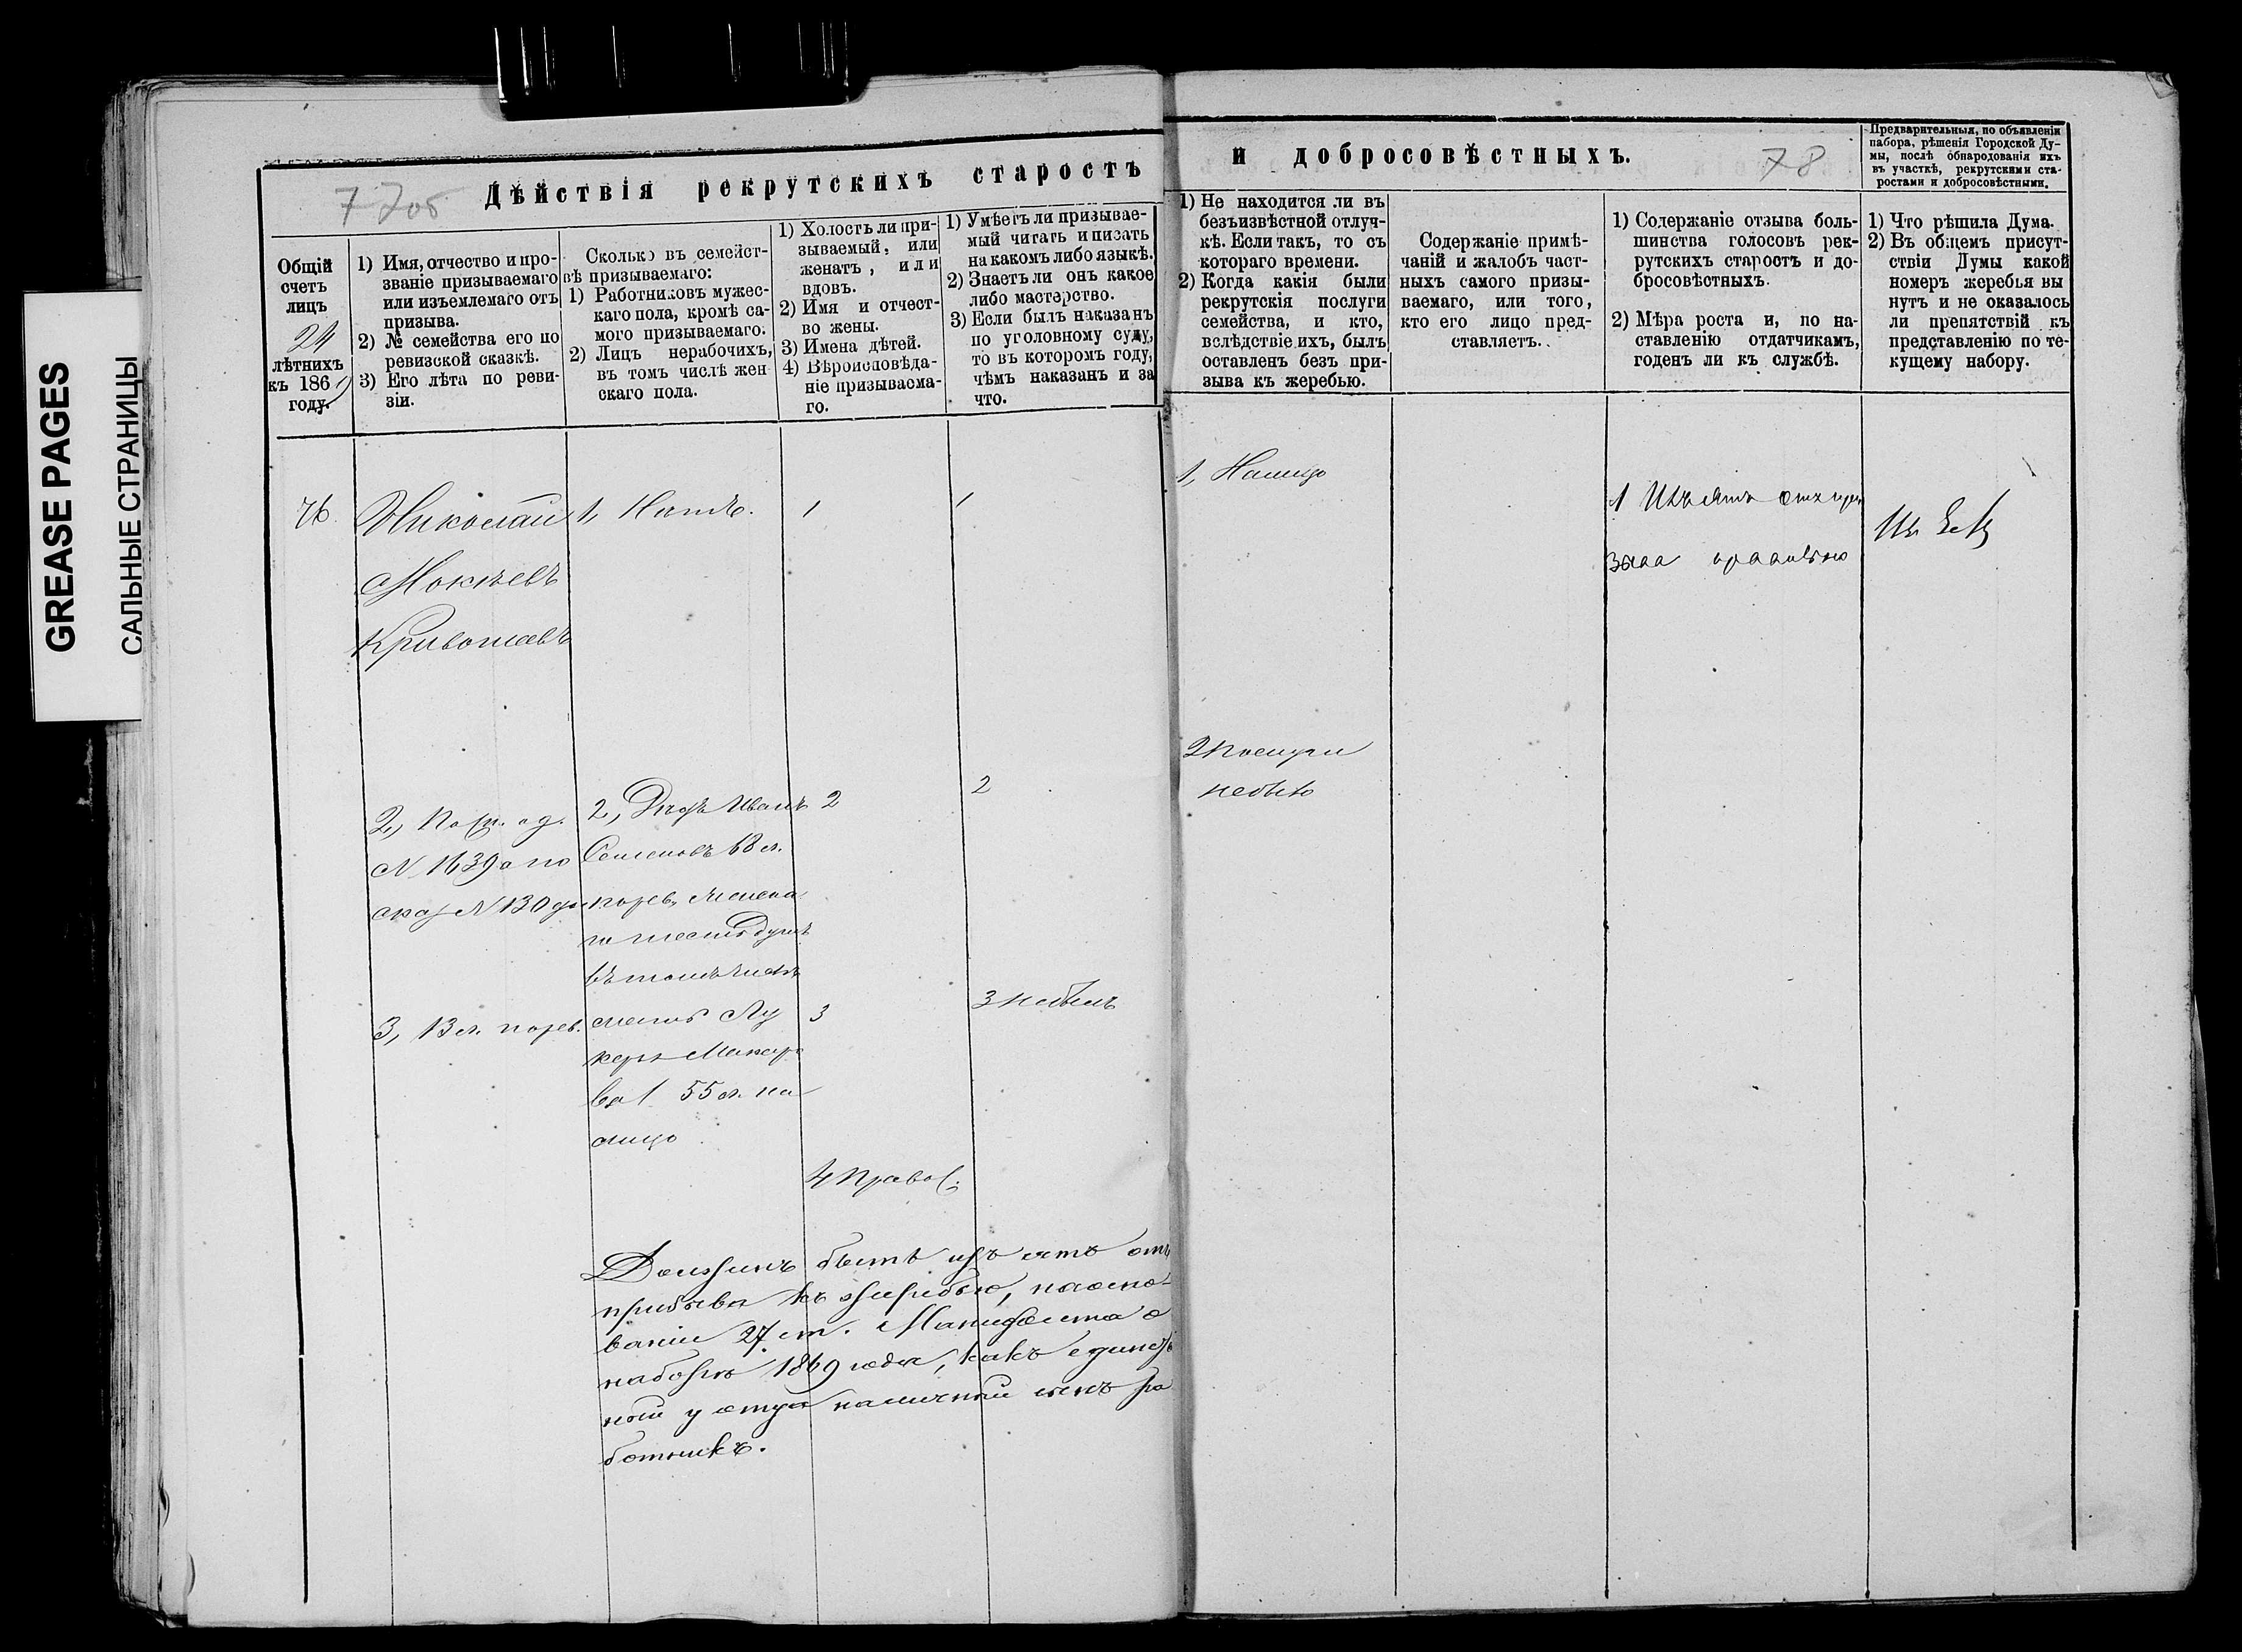 GREASE PAGES
САЛЬНЫЕ СТРАНИЦЫ
77об
Дѣйствія рекрутскихъ старостъ
и добросовѣстныхъ.
78
Предварительныя, по объявленіи
набора, рѣшенія Городской Ду-
мы, послѣ обнародованія ихъ
въ участкѣ, рекрутскими ста-
ростами и добросовѣстными.
Общій
счетъ
лицъ
24
лѣтнихъ
къ 1869
году.
1) Имя, отчество и про-
званіе призываемаго
или изъемлемаго отъ
призыва.
2) № семейства его по
ревизской сказкѣ.
3) Его лѣта по реви-
зіи.
Сколько въ семейст-
вѣ призываемаго:
1) Работниковъ мужес-
каго пола, кромѣ са-
мого призываемаго.
2) Лицъ нерабочихъ,
въ томъ числѣ жен
скаго пола.
1) Холостъ ли при-
зываемый, или
женатъ, или
вдовъ.
2) Имя и отчест-
во жены.
3) Имена дѣтей.
4) Вѣроисповѣда-
ніе призываема-
го.
1) Умѣетъ ли призывае-
мый читать и писать
на какомъ либо языкѣ.
2) Знаетъ ли онъ какое
либо мастерство.
3) Если былъ наказанъ
по уголовному суду,
то въ котором году,
чѣмъ наказанъ и за
что.
1) Не находится ли въ
безъизвѣстной отлуч-
кѣ. Если такъ, то съ
котораго времени.
2) Когда какія были
рекрутскія послуги
семейства, и кто,
вслѣдствіе ихъ, былъ
оставленъ безъ при-
зыва къ жеребью.
Содержаніе примѣ-
чаній и жалобъ част-
ныхъ самого призы-
ваемаго, или того,
кто его лицо пред-
ставляетъ.
1) Содержаніе отзыва боль-
шинства голосовъ рек-
рутскихъ старостъ и до-
бросовѣстныхъ.
2) Мѣра роста и, по на-
ставленію отдатчикамъ,
годенъ ли къ службѣ.
1) Что рѣшила Дума.
2) Въ общемъ присут-
ствіи Думы какой
номеръ жеребья вы
нутъ и не оказалось
ли препятствій къ
представленію по те-
кущему набору.
76.
Николай
Мокѣевъ
1, Нѣтъ.
1
1
1, Налицо
1 Изъятъ отъ при
зыва правильно
2,
N 1639 а по
N 130
2, Дядя Иванъ
Семеновъ 68 л.
по рев.
душъ
въ томъ числѣ
55 л. на
лицо
2
2
2 послуги
небыло
3, 13 л. порев.
3
3 небылъ
4 Правос.
Долженъ быть изъятъ отъ
призыва къ жеребью, наосно-
ваніи 27 ст. Манифеста о
наборѣ 1869 года, какъ единст
ный у отца наличный сынъ ра
ботникъ.